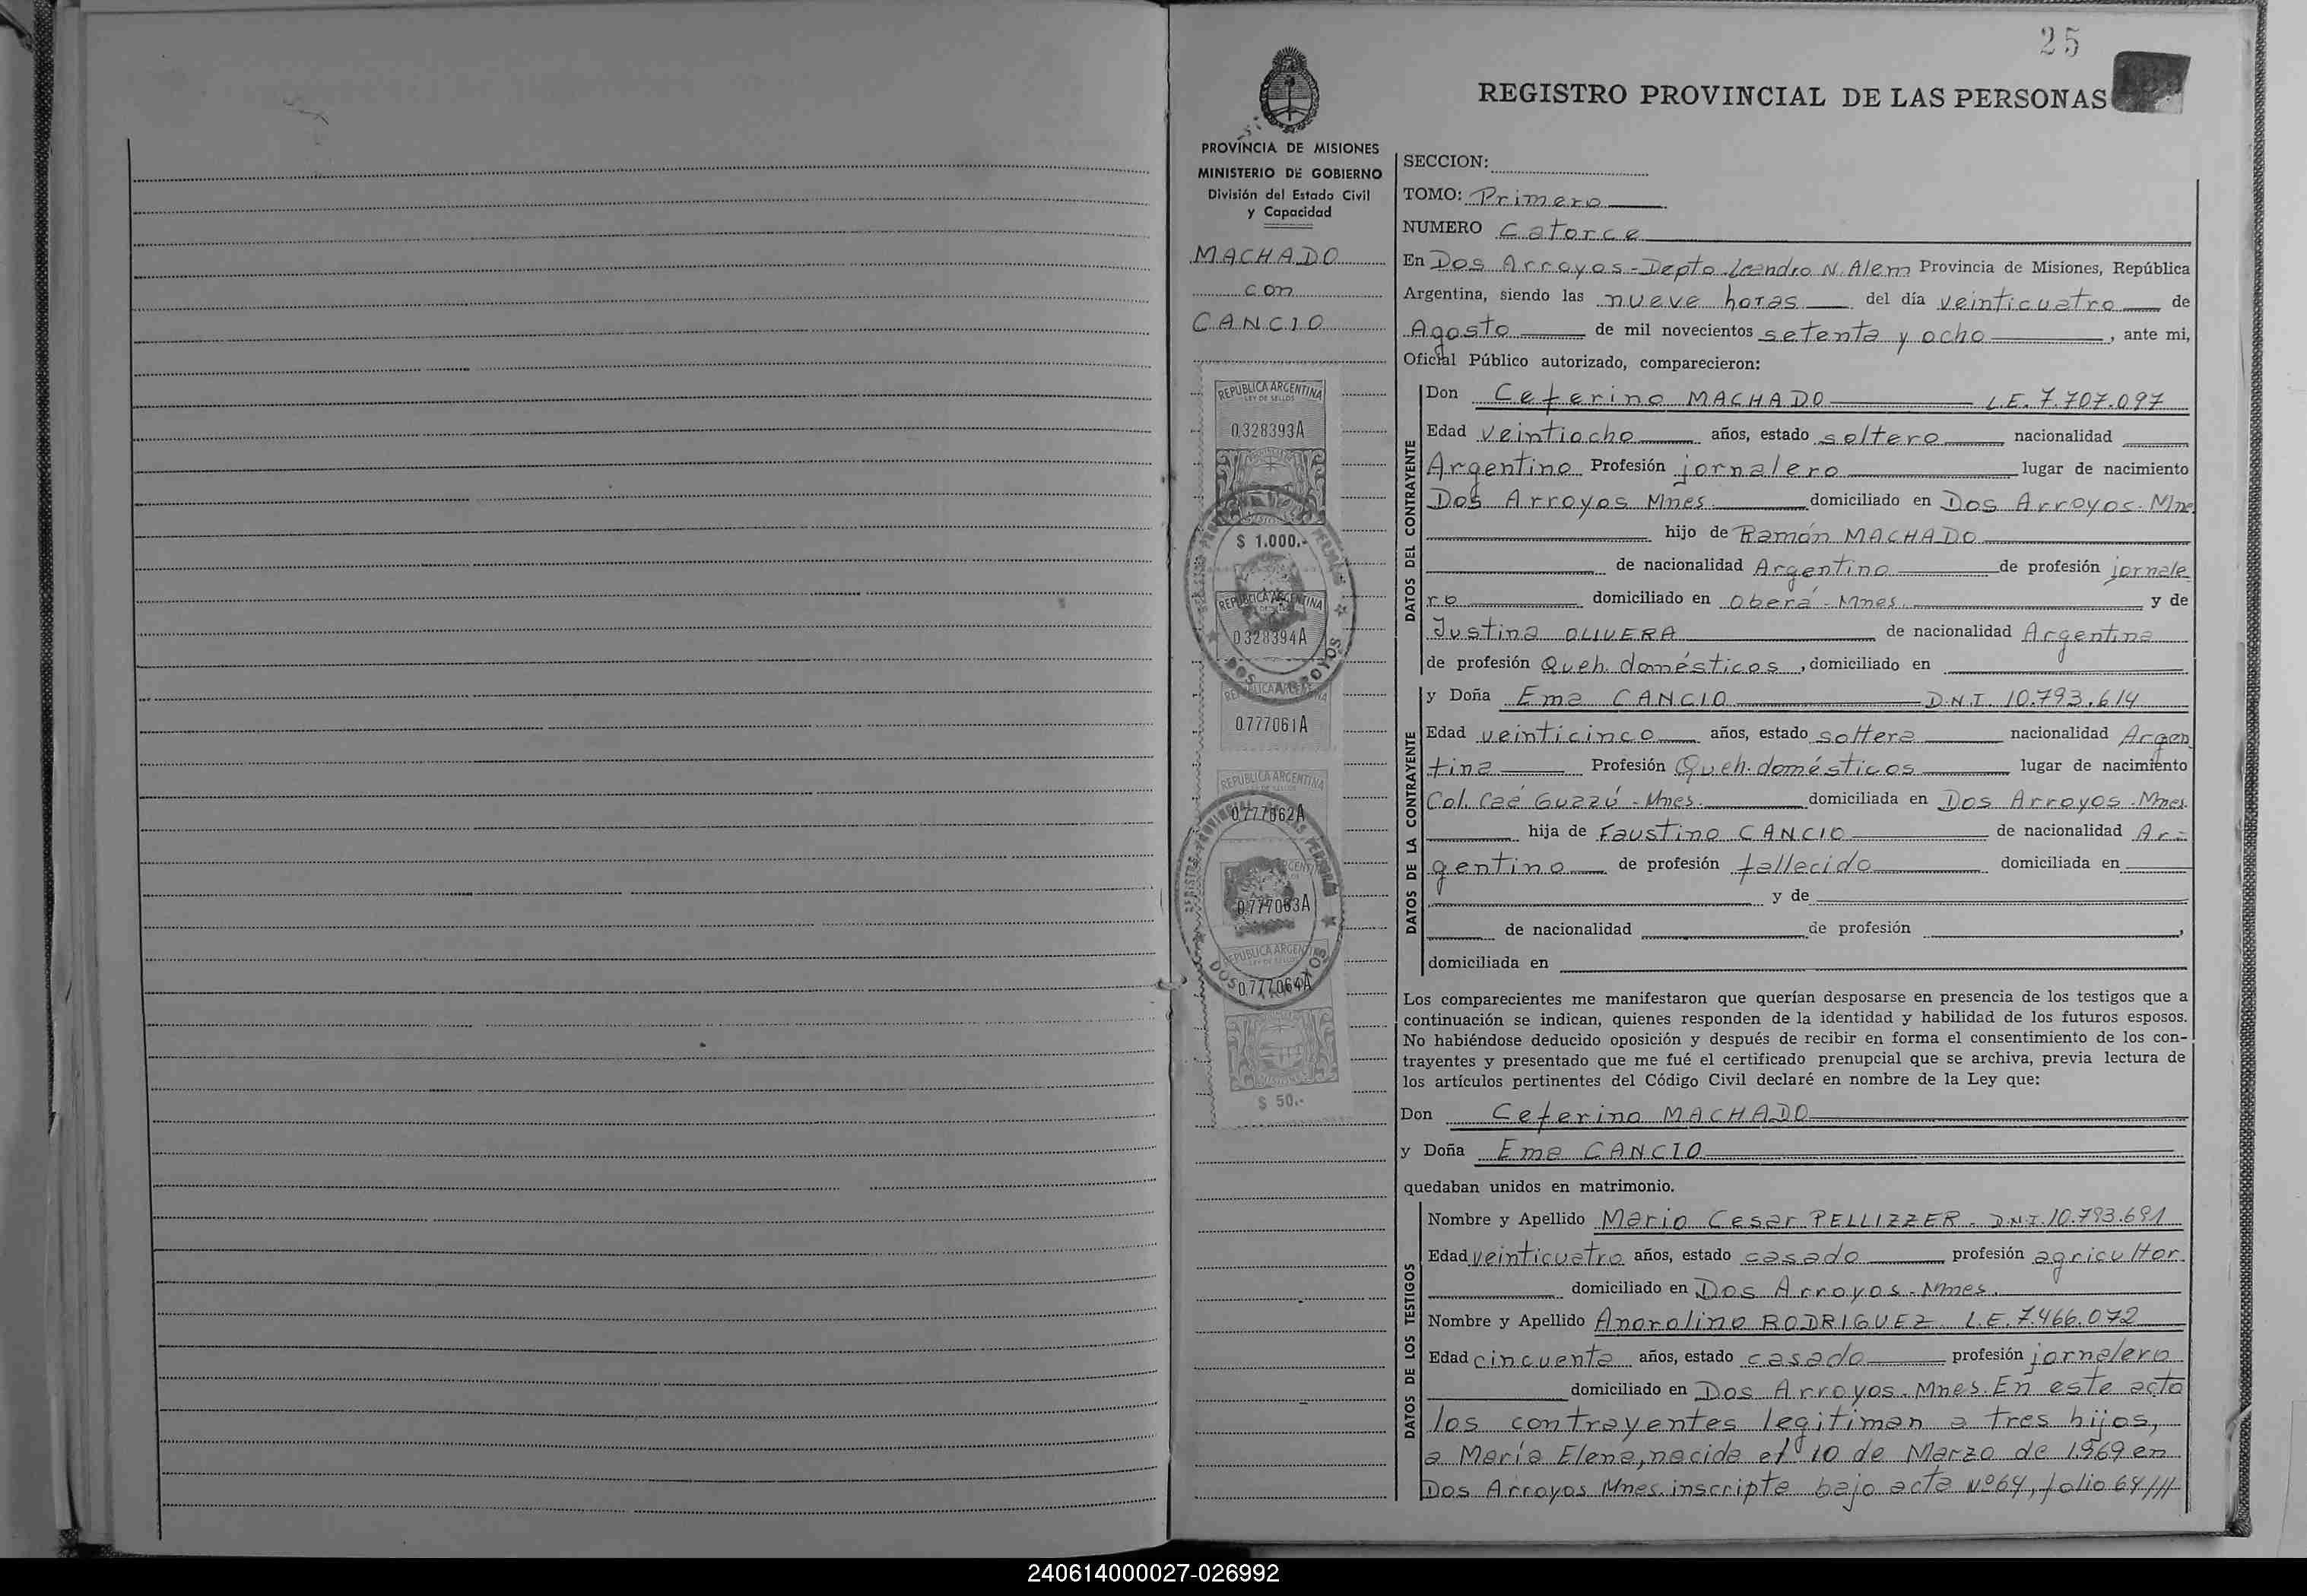 25
REGISTRO PROVINCIAL DE LAS PERSONAS
PROVINCIA DE MISIONES
MINISTERIO DE GOBIERNO
División del Estado Civil
y Capacidad
MACHADO
con
CANCIO
REPUBLICA ARGENTINA
LEY DE SELLOS
0328393A
$ 1.000.-
REPUBLICA ARGENTINA
0328394A
DOS ARROYOS
0777061A
REPUBLICA ARGENTINA
0777062A
0777063A
REPUBLICA ARGENTINA
DOS ARROYOS
0777064A
$ 50.-
SECCION:
TOMO: Primero
NUMERO Catorce
En Dos Arroyos - Depto. Leandro N. Alem Provincia de Misiones, República
Argentina, siendo las nueve horas del día veinticuatro de
Agosto de mil novecientos setenta y ocho, ante mi,
Oficial Público autorizado, comparecieron:
DATOS DEL CONTRAYENTE
Don Ceferino MACHADO L.E. 7.707.097
Edad veintiocho años, estado soltero nacionalidad
Argentino Profesión jornalero lugar de nacimiento
Dos Arroyos Mnes. domiciliado en Dos Arroyos. Mne
hijo de Ramón MACHADO
de nacionalidad Argentino de profesión jornale
ro domiciliado en Oberá - Mnes. y de
Justina OLIVERA de nacionalidad Argentina
de profesión Queh. domésticos, domiciliado en
DATOS DE LA CONTRAYENTE
y Doña Ema CANCIO D.N.I. 10.793.614
Edad veinticinco años, estado soltera nacionalidad Argen
tina Profesión Queh. domésticos lugar de nacimiento
Col. Caá Guazú - Mnes. domiciliada en Dos Arroyos. Mnes.
hija de Faustino CANCIO de nacionalidad Ar-
gentino de profesión fallecido domiciliada en
y de
de nacionalidad de profesión ,
domiciliada en
Los comparecientes me manifestaron que querían desposarse en presencia de los testigos que a
continuación se indican, quienes responden de la identidad y habilidad de los futuros esposos.
No habiéndose deducido oposición y después de recibir en forma el consentimiento de los con-
trayentes y presentado que me fué el certificado prenupcial que se archiva, previa lectura de
los artículos pertinentes del Código Civil declaré en nombre de la Ley que:
Don Ceferino MACHADO
y Doña Ema CANCIO
quedaban unidos en matrimonio.
DATOS DE LOS TESTIGOS
Nombre y Apellido Mario Cesar PELLIZZER. D.N.I. 10.793.691
Edad veinticuatro años, estado casado profesión agricultor
domiciliado en Dos Arroyos. Mnes.
Nombre y Apellido Anorolino RODRIGUEZ L.E. 7.466.072
Edad cincuenta años, estado casado profesión jornalero
domiciliado en Dos Arroyos. Mnes. En este acto
los contrayentes legitiman a tres hijos,
a María Elena, nacida el 10 de Marzo de 1969 en
Dos Arroyos Mnes. inscripta bajo acta Nº 64, folio 64///
240614000027-026992